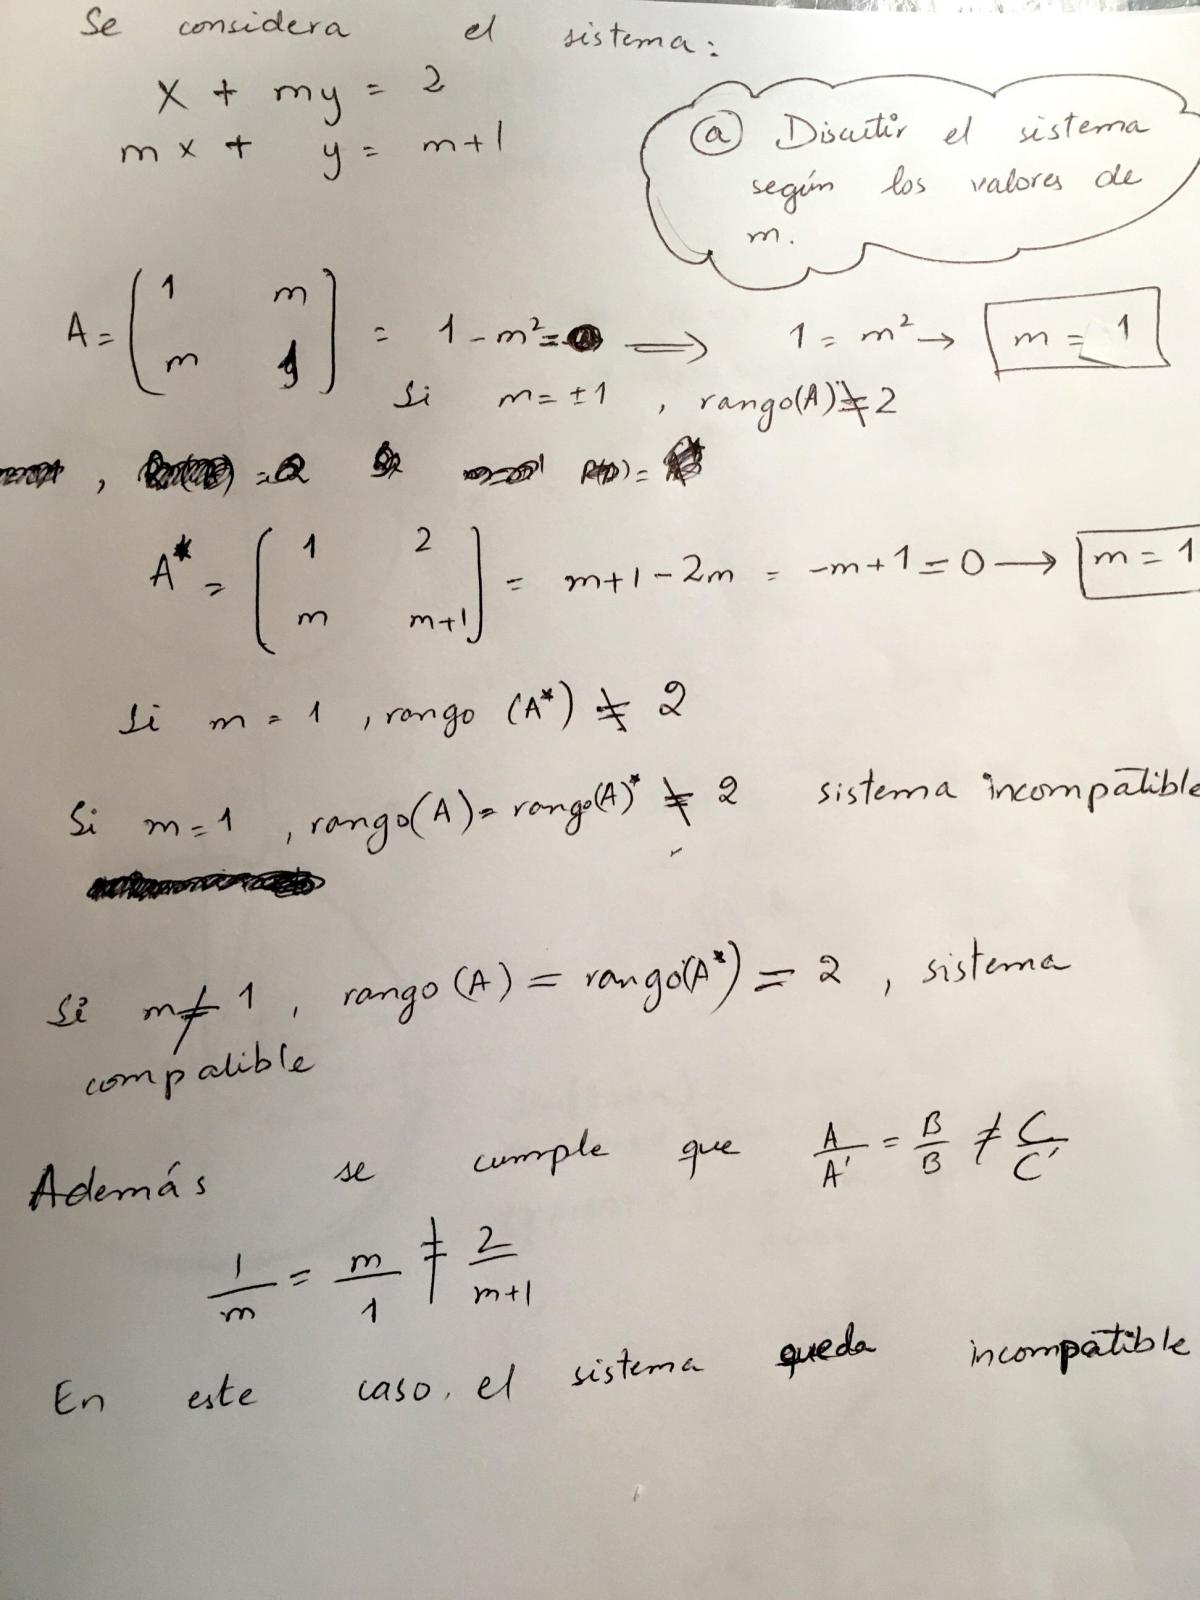 Se considera el sistema:
x + my = 2
mx + y = m+1
ⓐ Discutir el sistema
según los valores de
m.
A = ( 1 m
m 1 ) = 1 - m² = ⟹ 1 = m² → m = 1
Si m = ±1 , rango(A) ≠ 2
A* = ( 1 2
m m+1 ) = m+1 - 2m = -m+1 = 0 → m = 1
Si m = 1 , rango (A*) ≠ 2
Si m = 1 , rango(A) = rango(A)* ≠ 2 sistema incompatible
Si m ≠ 1 , rango (A) = rango(A*) = 2 , sistema
compatible
Además se cumple que A/A' = B/B ≠ C/C'
1/m = m/1 ≠ 2/m+1
En este caso, el sistema queda incompatible